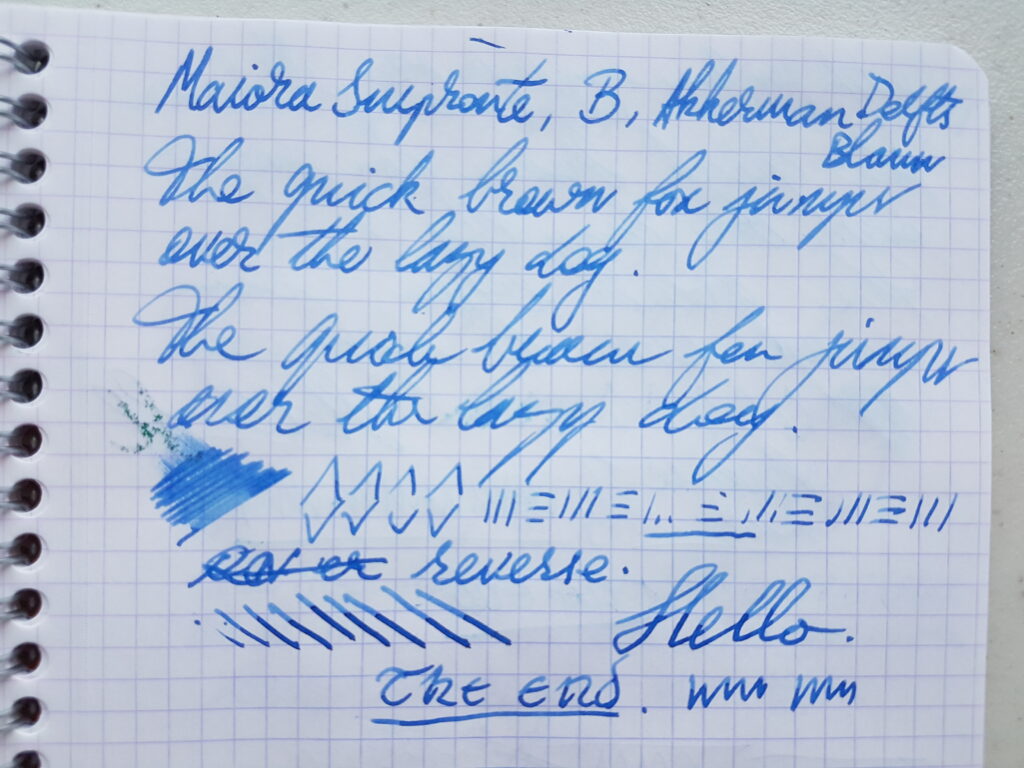 Maiora Impronte, B, Akkerman Delfts
Blauw
The quick brown fox jumps
over the lazy dog.
The quick brown fox jumps
over the lazy dog.
reverse.
Hello.
THE END.